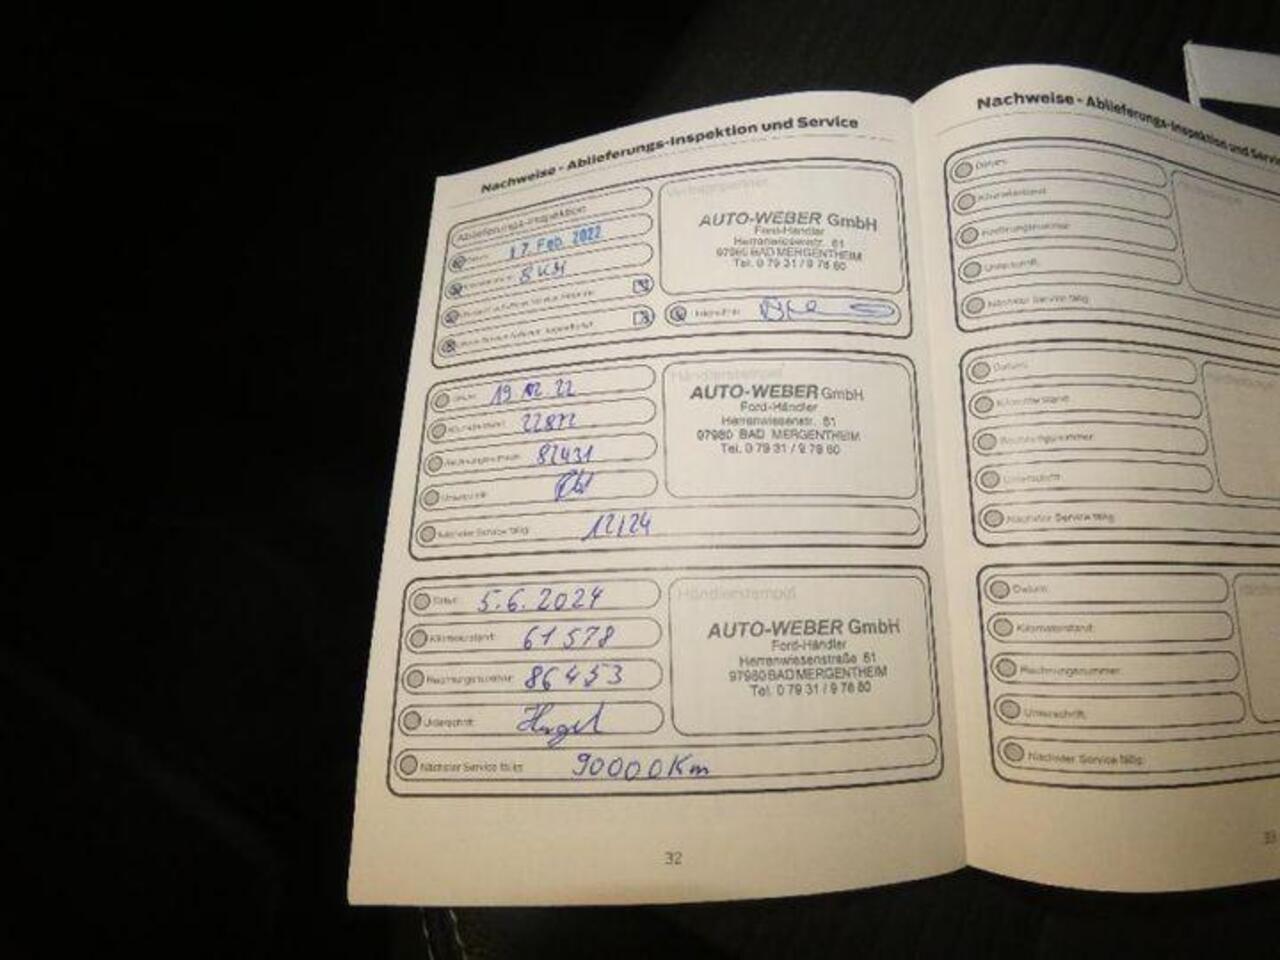 Nachweise - Ablieferungs-Inspektion und Service
Ablieferungs-Inspektion
Datum: 17. Feb. 2022
8 KM
Vertragspartner
AUTO-WEBER GmbH
Ford-Händler
Herrenwiesenstr. 61
97980 BAD MERGENTHEIM
Tel. 0 79 31 / 9 76 60
Unterschrift:
Datum: 19.12.22
Kilometerstand: 22872
Rechnungsnummer: 82431
Unterschrift:
Nächster Service fällig: 12/24
Händlerstempel
AUTO-WEBER GmbH
Ford-Händler
Herrenwiesenstr. 61
97980 BAD MERGENTHEIM
Tel. 0 79 31 / 9 76 60
Datum: 5.6.2024
Kilometerstand: 61578
Rechnungsnummer: 86453
Unterschrift:
Nächster Service fällig: 90000 Km
Händlerstempel
AUTO-WEBER GmbH
Ford-Händler
Herrenwiesenstraße 61
97980 BAD MERGENTHEIM
Tel. 0 79 31 / 9 76 60
32
Nachweise - Ablieferungs-Inspektion und Service
Datum:
Kilometerstand:
Rechnungsnummer:
Unterschrift:
Nächster Service fällig:
Datum:
Kilometerstand:
Rechnungsnummer:
Unterschrift:
Nächster Service fällig:
Datum:
Kilometerstand:
Rechnungsnummer:
Unterschrift:
Nächster Service fällig:
33